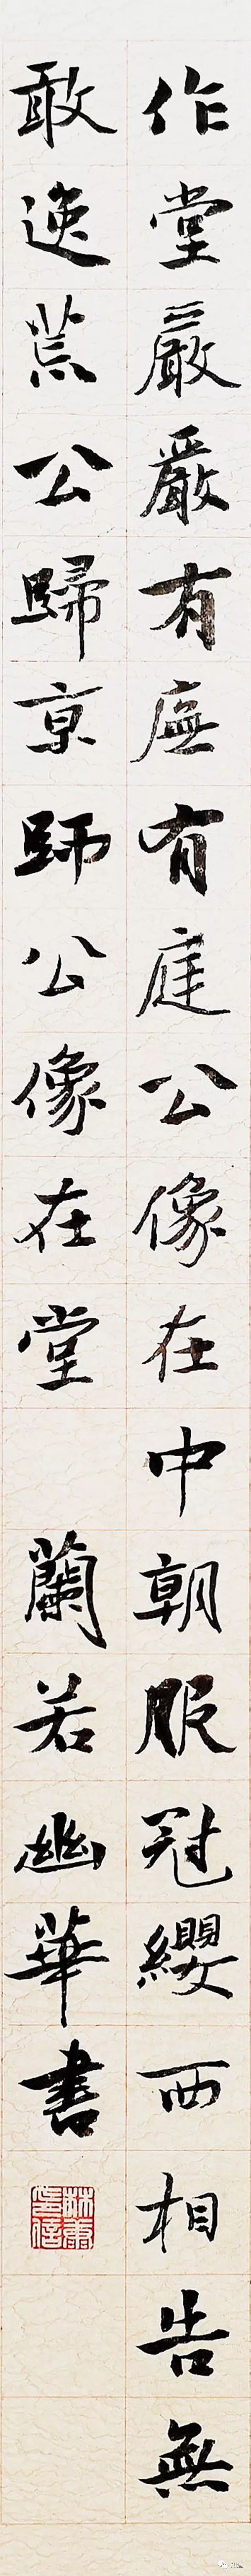 作堂嚴嚴有廡有庭公像在中朝服冠纓西相告無
敢逸荒公歸京師公像在堂
蘭若幽華書